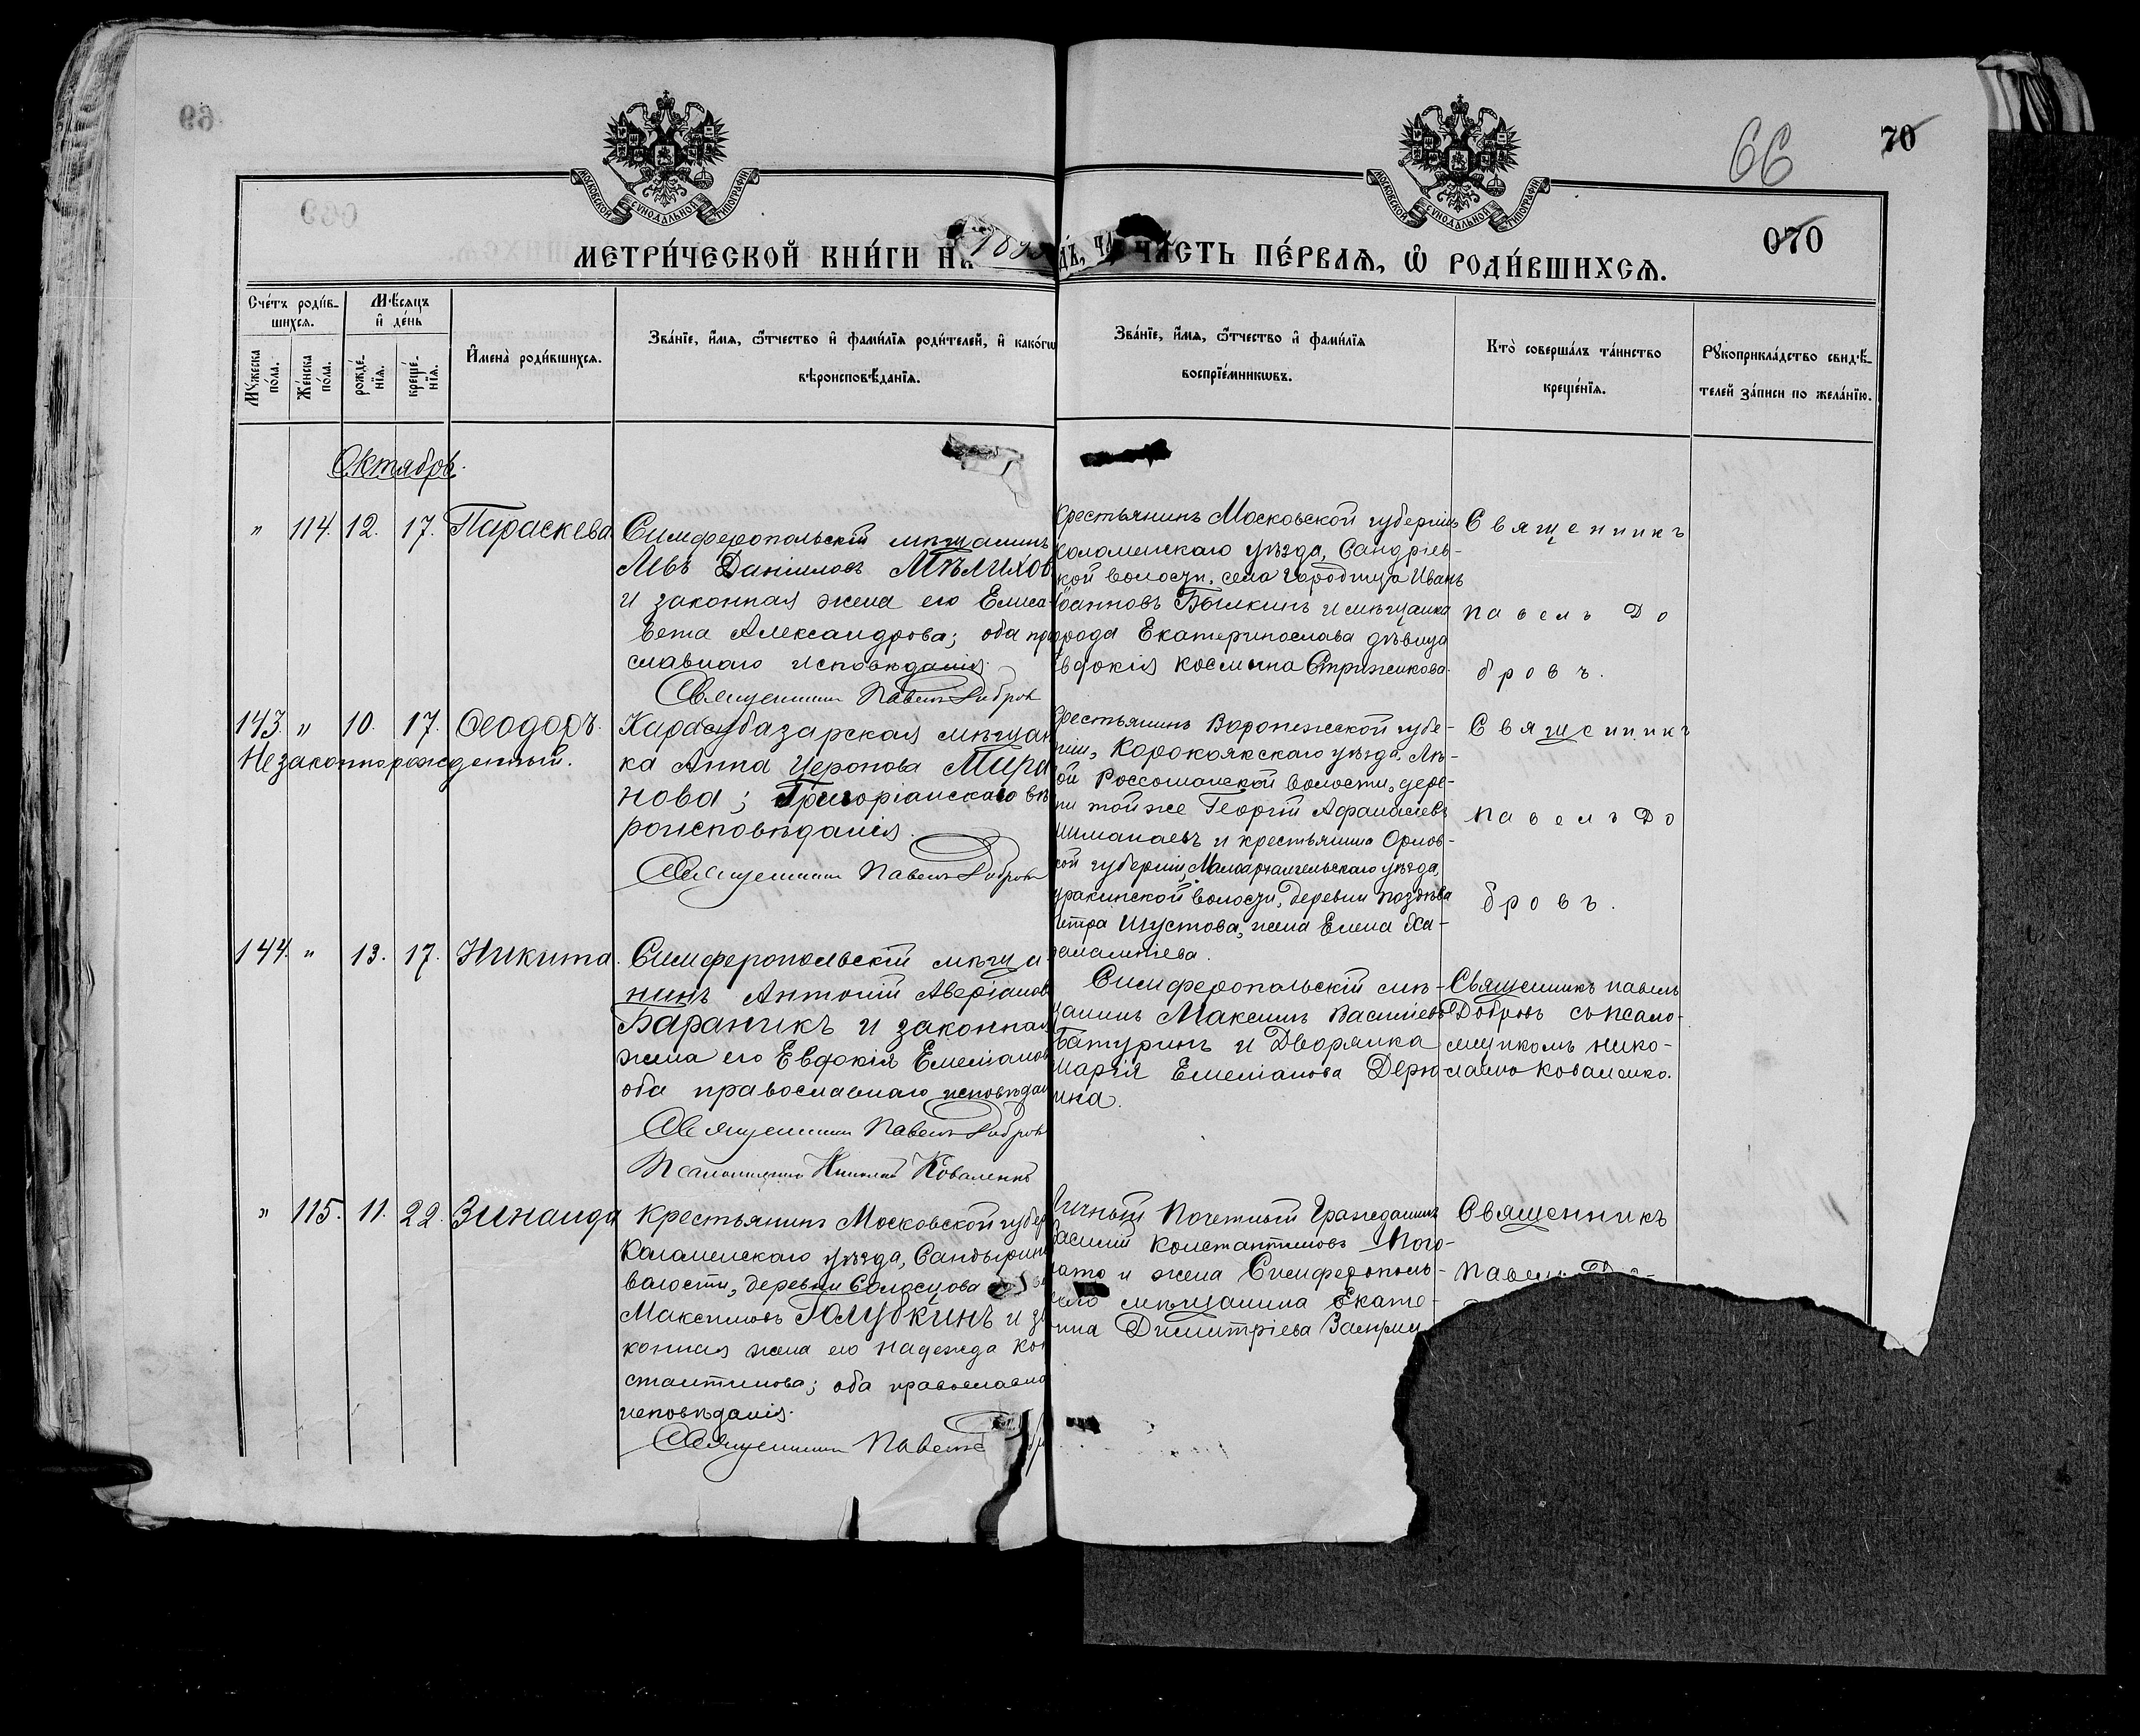 66
70
070
МОСКОВСКОЙ СУНОДАЛЬНОЙ ТИПОГРАФІИ
МОСКОВСКОЙ СУНОДАЛЬНОЙ ТИПОГРАФІИ
МЕТРИ́ЧЕСКОЙ КНИ́ГИ НА
ЧА́СТЬ ПЕ́РВАѦ, Ѽ РОДИ́ВШИХСѦ.
Сче́тъ роди́в-
шихсѧ.
Мѣ́сяцъ
и҆ де́нь
Мꙋ́жеска по́ла.
Же́нска по́ла.
рожде́-
нїѧ.
креще́-
нїѧ.
И҆мена̀ роди́вшихсѧ.
Зва́нїе, и҆́мѧ, ѻ҆́тчество и҆ фами́лїѧ роди́телей, и҆ како́гѡ
вѣроисповѣ́данїѧ.
Зва́нїе, и҆́мѧ, ѻ҆́тчество и҆ фами́лїѧ
воспрїе́мникѡвъ.
Кто̀ соверша́лъ та́инство
креще́нїѧ.
Рꙋкоприкла́дство свидѣ́-
телей за́писи по жела́нїю.
Октябрь.
" 114. 12. 17. Параскева.
Симферопольскій мѣщанинъ
Левъ Даніиловъ Мѣлихов
и законная жена его Елиса-
вета Александрова; оба пра
славнаго исповѣданія.
Священникъ Павелъ Добров
Крестьянинъ Московской губерніи
Коломенскаго уѣзда, Сандрiев-
кой волости, села Городища Иванъ
Іоанновъ Былкинъ и мѣщанка
города Екатеринослава дѣвица
Евдокія Космина Стрижикова.
Священникъ
Павелъ До
бровъ.
143. " 10. 17. Ѳеодоръ.
Незаконнорожденный.
Карасубазарская мѣщан
ка Анна Иеронова Миро
нова; Григоріанскаго вѣ
роисповѣданія.
Священникъ Павелъ Добров
Крестьянинъ Воронежской губе-
рніи, Коротоякскаго уѣзда, Лѣ-
ой Россошанской волости, дере-
ни той же Георгій Афанасьевъ
и крестьянина Орлов-
кой губерніи, Малоархангельскаго уѣзда,
уракинской волости, деревни
етра Шустова, жена Елена Ха-
ралампіева.
Священникъ
Павелъ До
бровъ.
144. " 13. 17. Никита.
Симферопольскій мѣща-
нинъ Антоній Аверіанов
Бараникъ и законная
жена его Евдокія Емеліанов
оба православнаго исповѣдан
Священникъ Павелъ Добров
Псаломщикъ Николай Коваленко
Симферопольскій мѣ-
щанинъ Максимъ Васильевъ
Батуринъ и Дворянка
Марія Емеліанова Дерю-
ина.
Священникъ Павелъ
Добровъ съ псало-
мщикомъ Нико-
лаемъ Коваленко.
" 115. 11. 22. Зинаида
Крестьянинъ Московской губер
Коломенскаго уѣзда, Сандырин
волости, деревни Солосцова
Максимовъ Голубкинъ и за
конная жена его Надежда Кон
стантинова; оба православна
исповѣданія.
Священникъ Павелъ
Личный Почетный Гражданинъ
Василій Константиновъ Пого-
и жена Симферополь-
мѣщанина Екате-
ина Димитріева
Священникъ
Павелъ До-